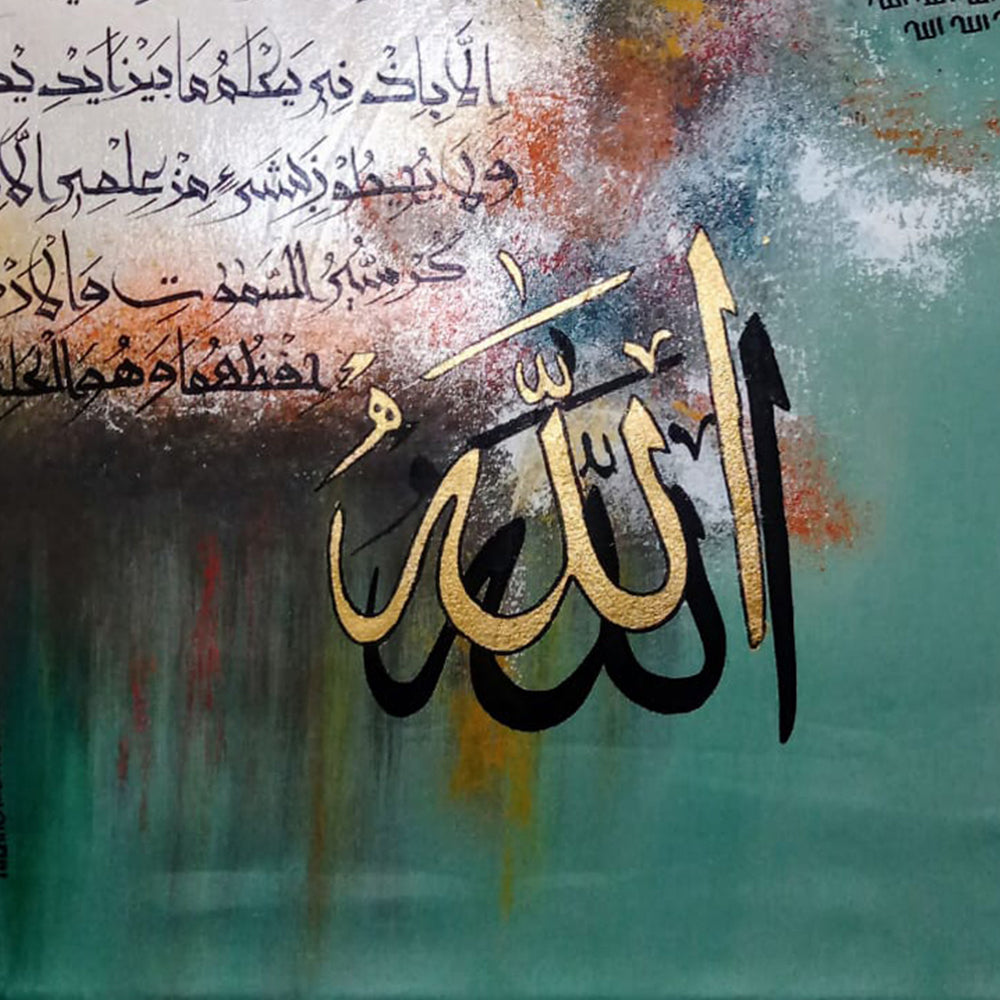 الله الله
اِلَّا بِاِذْنِهٖ يَعْلَمُ مَا بَيْنَ اَيْدِيْ
وَلَا يُحِيْطُوْنَ بِشَيْءٍ مِّنْ عِلْمِهٖ اِلَّا
كُرْسِيُّهُ السَّمٰوٰتِ وَالْاَرْ
حِفْظُهُمَا وَهُوَ الْعَلِ
اللّٰهُ